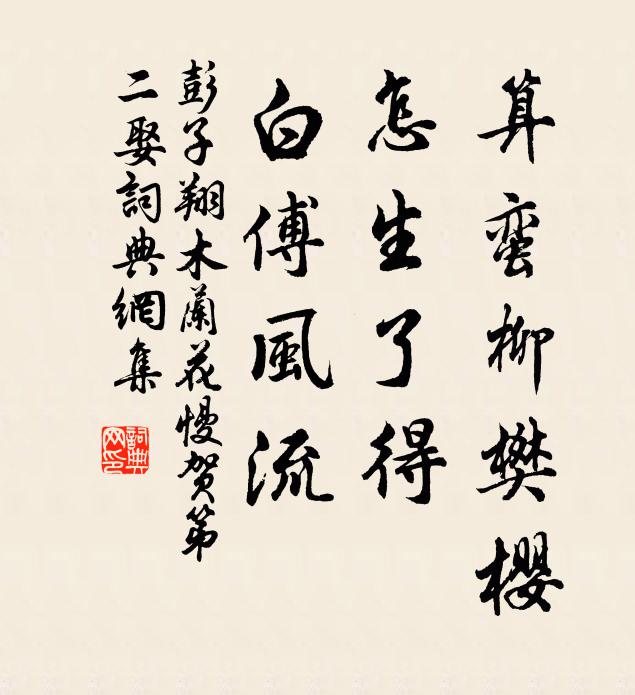 算蛮柳樊樱
怎生了得
白傅風流
彭子翔木蘭花慢贺第
二娶詞典網集
詞典网印